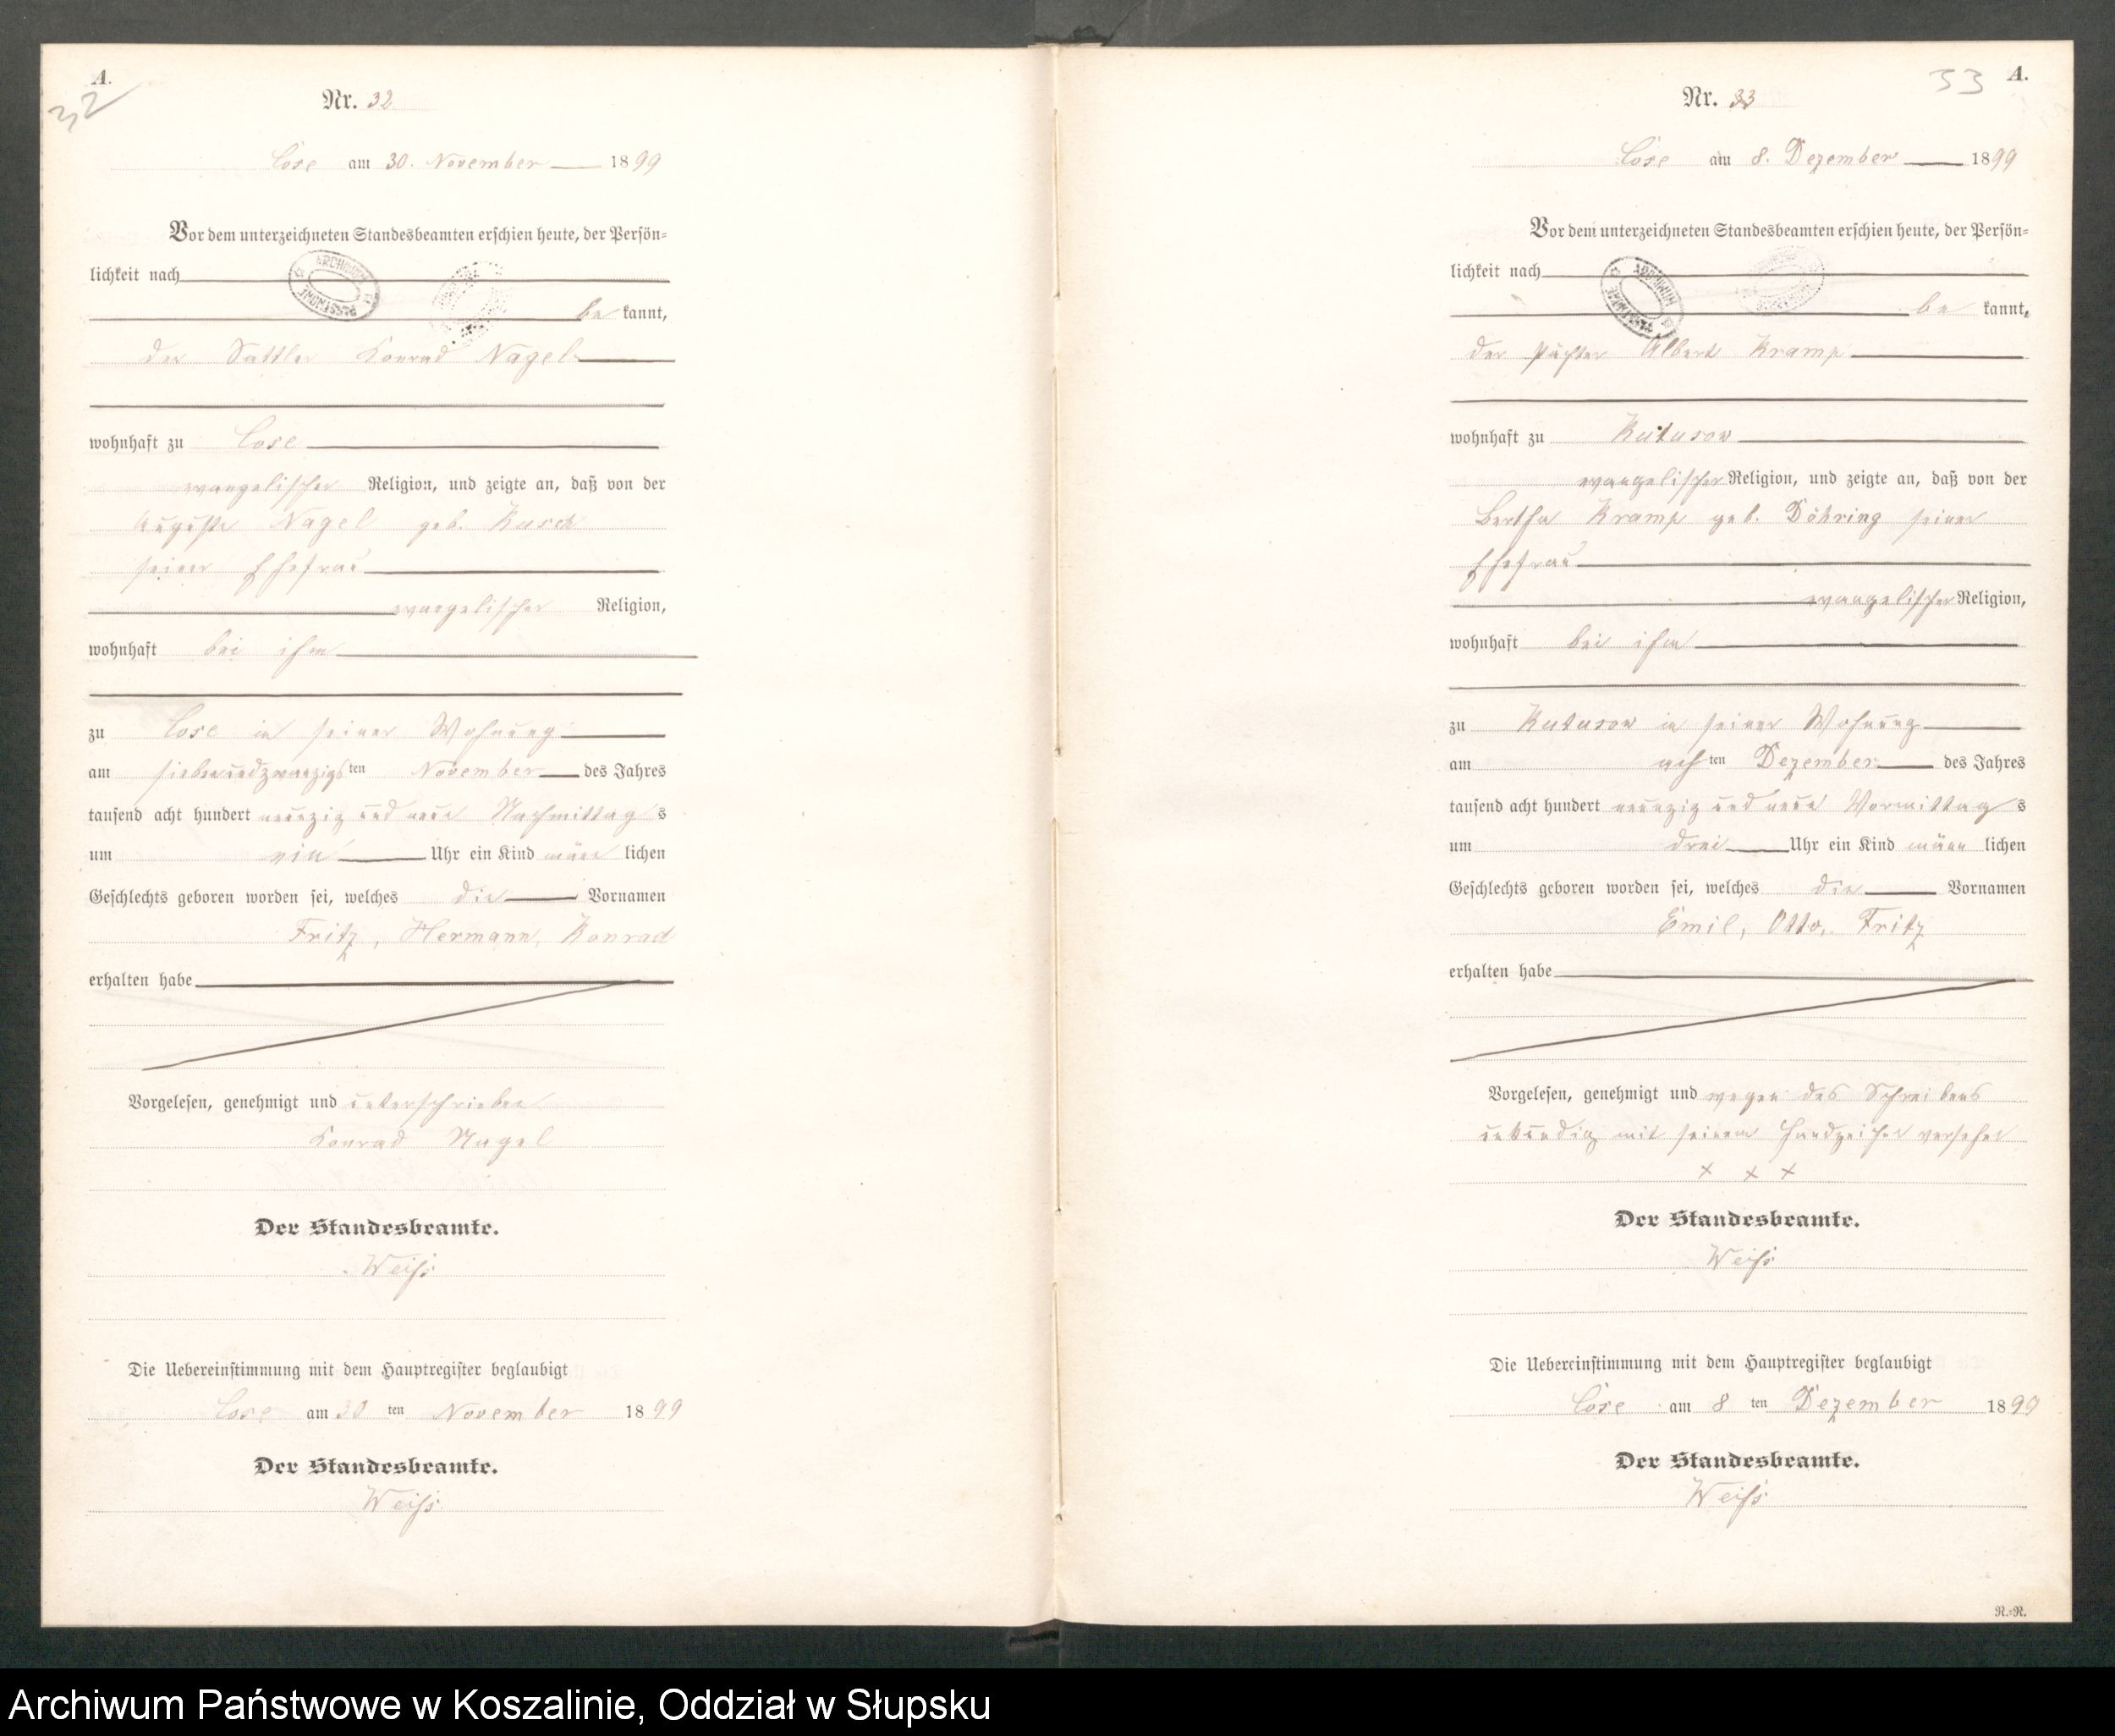 A.
32
Nr. 32
Lose am 30. November 1899
Vor dem unterzeichneten Standesbeamten erschien heute, der Persön-
lichkeit nach
be kannt,
der Sattler Konrad Nagel
wohnhaft zu Lose
evangelischer Religion, und zeigte an, daß von der
Auguste Nagel geb. Kusch
seiner Ehefrau
evangelischer Religion,
wohnhaft bei ihm
zu Lose in seiner Wohnung
am siebenundzwanzigs ten November des Jahres
tausend acht hundert neunzig und neun Nachmittag s
um ein Uhr ein Kind männ lichen
Geschlechts geboren worden sei, welches die Vornamen
Fritz, Hermann, Konrad
erhalten habe
Vorgelesen, genehmigt und unterschrieben
Konrad Nagel
Der Standesbeamte.
Weiß
Die Uebereinstimmung mit dem Hauptregister beglaubigt
Lose am 30 ten November 1899
Der Standesbeamte.
Weiß
33 A.
Nr. 33
Lose am 8. Dezember 1899
Vor dem unterzeichneten Standesbeamten erschien heute, der Persön-
lichkeit nach
be kannt,
der Pächter Albert Kramp
wohnhaft zu Kutusow
evangelischer Religion, und zeigte an, daß von der
Bertha Kramp geb. Döhring seiner
Ehefrau
evangelischer Religion,
wohnhaft bei ihm
zu Kutusow in seiner Wohnung
am ach ten Dezember des Jahres
tausend acht hundert neunzig und neun Vormittag s
um drei Uhr ein Kind männ lichen
Geschlechts geboren worden sei, welches die Vornamen
Emil, Otto, Fritz
erhalten habe
Vorgelesen, genehmigt und wegen des Schreibens
unkundig mit seinem Handzeichen versehen
x x x
Der Standesbeamte.
Weiß
Die Uebereinstimmung mit dem Hauptregister beglaubigt
Lose am 8 ten Dezember 1899
Der Standesbeamte.
Weiß
R.-R.
Archiwum Państwowe w Koszalinie, Oddział w Słupsku